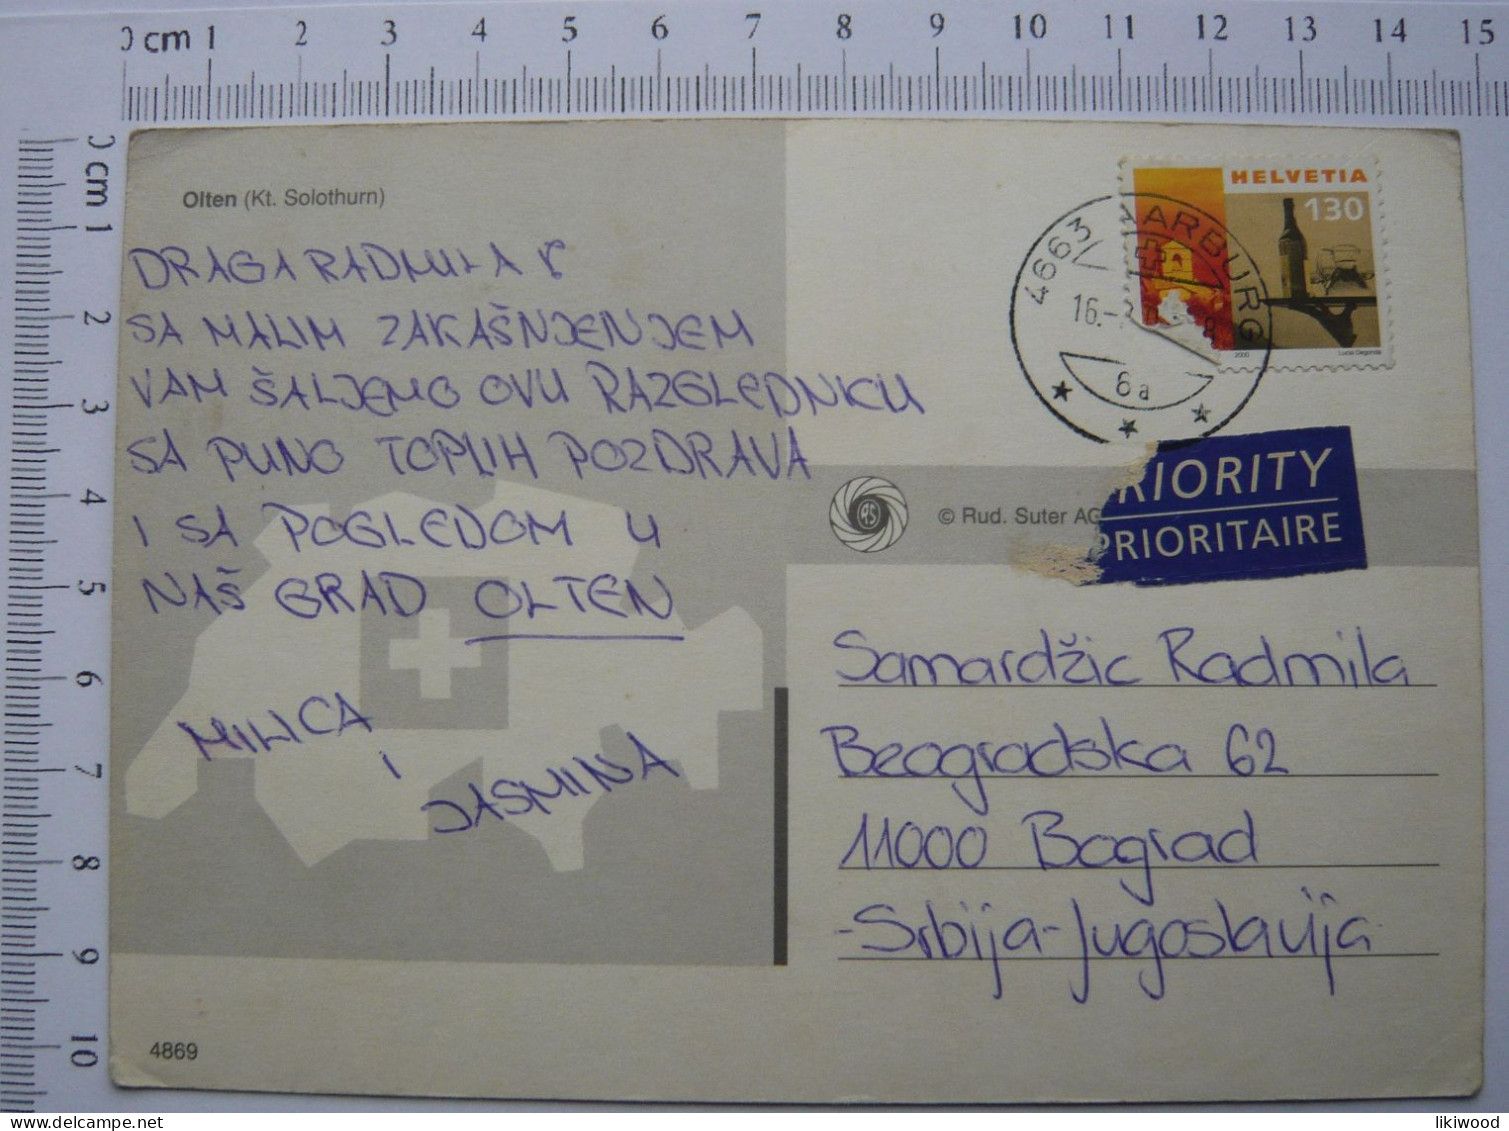 0 cm 1 2 3 4 5 6 7 8 9 10 11 12 13 14 15
0 cm 1 2 3 4 5 6 7 8 9 10
Olten (Kt. Solothurn)
DRAGA RADMILA
SA MALIM ZAKAŠNJENJEM
VAM ŠALJEMO OVU RAZGLEDNICU
SA PUNO TOPLIH POZDRAVA
I SA POGLEDOM U
NAŠ GRAD OLTEN
MILICA
I
JASMINA
4869
HELVETIA
130
2000
4663 AARBURG
16.-
6a
RIORITY
PRIORITAIRE
© Rud. Suter AG
Samardžic Radmila
Beogradska 62
11000 Bograd
-Srbija-Jugoslavija
likiwood